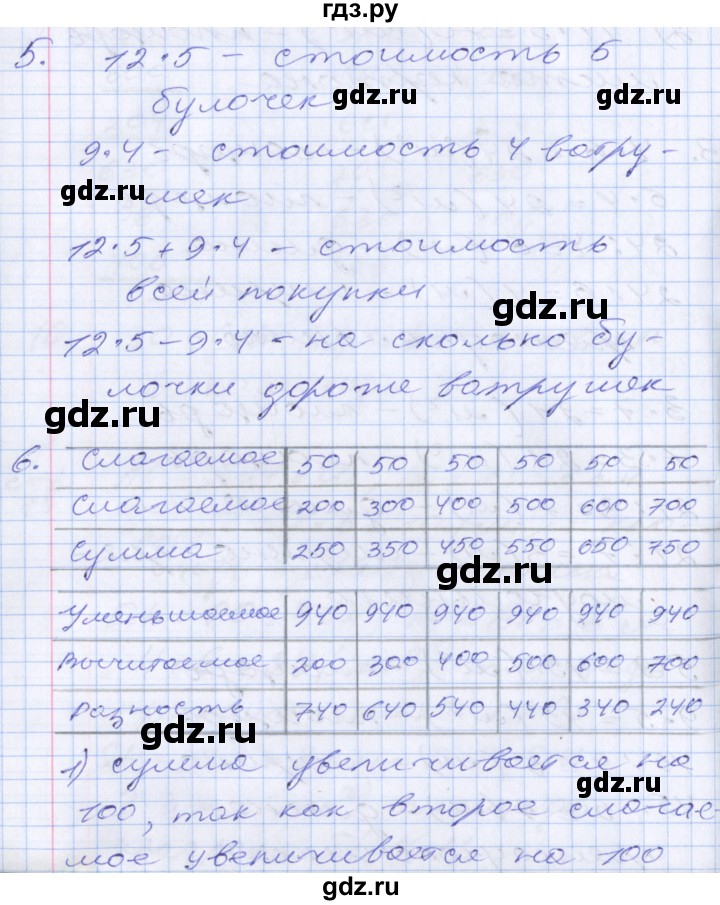 гдз.ру
5. 12·5 – стоимость 5
булочек gdz.ru
gdz.ru
9·4 – стоимость 4 ватру-
gdz.ru
шек
12·5+9·4 – стоимость
всей покупки
gdz.ru
12·5–9·4 – на сколько бу-
лочки дороже ватрушек
gdz.ru
6. Слагаемое 50 50 50 50 50 50
Слагаемое 200 300 400 500 600 700
Сумма 250 350 450 550 650 750
gdz.ru
Уменьшаемое 940 940 940 940 940 940
Вычитаемое 200 300 400 500 600 700
Разность 740 640 540 440 340 240
gdz.ru
1) сумма увеличивается на
gdz.ru
100, так как второе слагае-
мое увеличивается на 100
gdz.ru